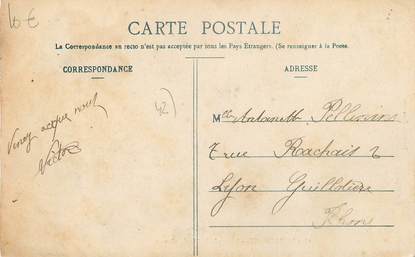 10 €
CARTE POSTALE
La Correspondance au recto n'est pas acceptée par tous les Pays Etrangers. (Se renseigner à la Poste.
CORRESPONDANCE
ADRESSE
42)
Mlle Antoinette
7 rue Rachais
Lyon Guillotière
Rhône
Victor